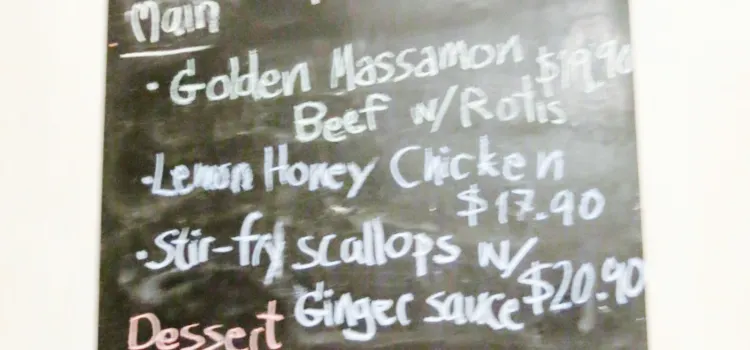 Main
· Golden Massamon $19.90
Beef w/ Rotis
· Lemon Honey Chicken
$17.90
· Stir-fry scallops w/
Ginger sauce $20.90
Dessert